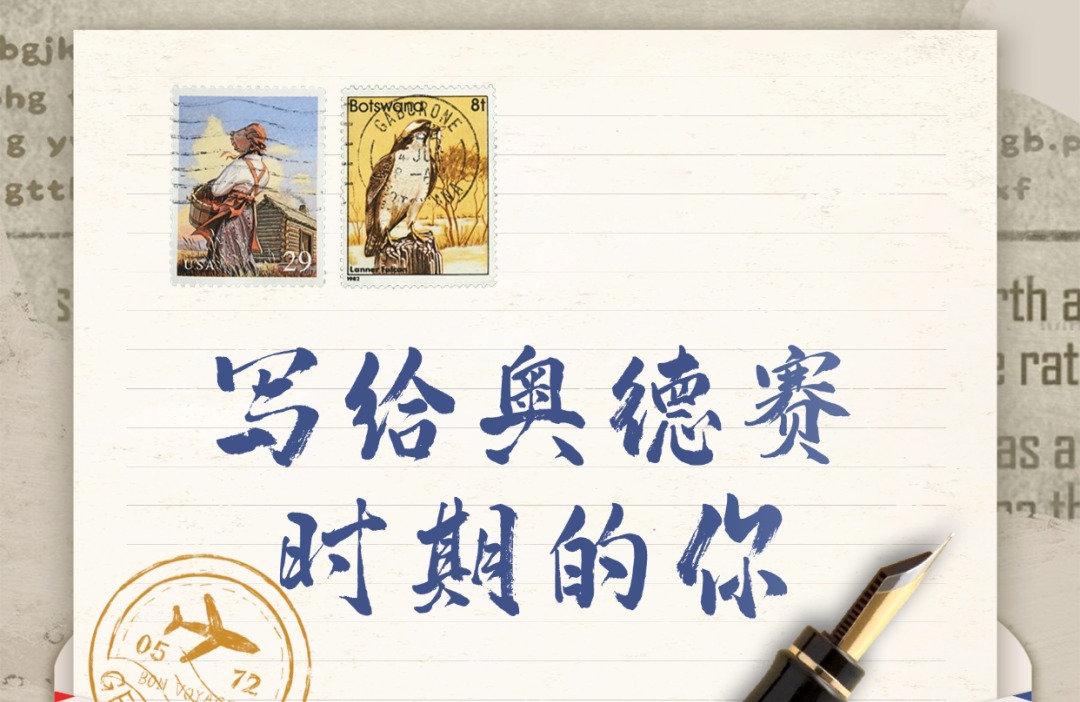 bgjk
hg
g y
gtt
Botswana 8t
GABORONE
USA 29
Lanner Falcon
1982
gb.p
xf
S
rth a
e rat
as a
写给奥德赛
时期的你
05
72
BON VOYAG